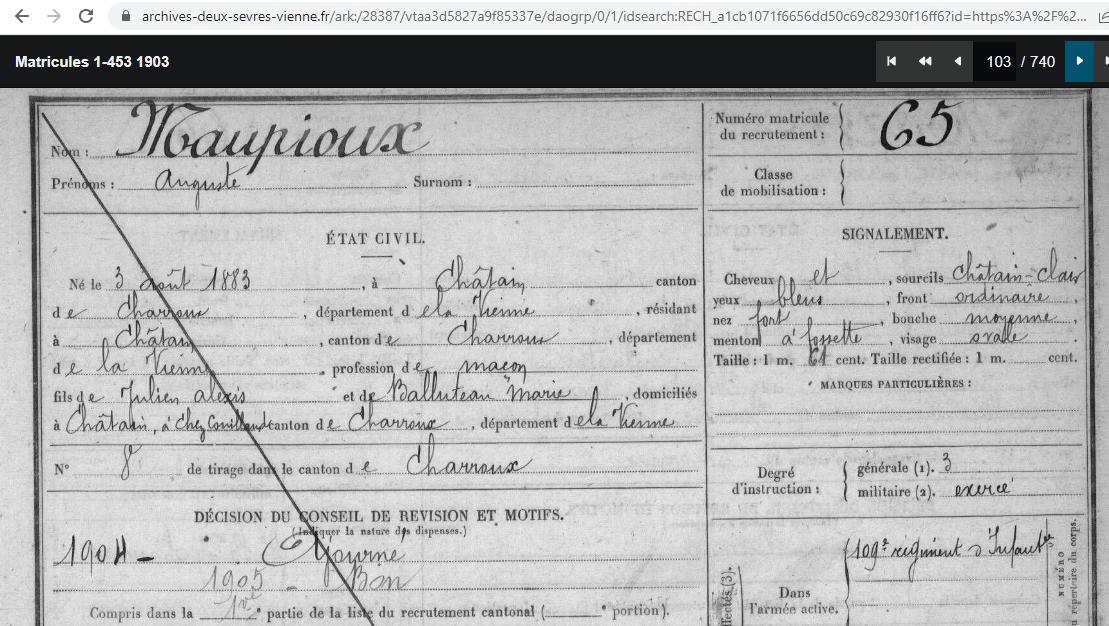 archives-deux-sevres-vienne.fr/ark:/28387/vtaa3d5827a9f85337e/daogrp/0/1/idsearch:RECH_a1cb1071f6656dd50c69c82930f16ff6?id=https%3A%2F%2...
Matricules 1-453 1903
103 / 740
Nom : Maupioux
Prénoms : Auguste Surnom :
Numéro matricule du recrutement : 65
Classe de mobilisation :
ÉTAT CIVIL.
Né le 3 août 1883, à Châtain canton
de Charroux, département de la Vienne, résidant
à Châtain, canton de Charroux, département
de la Vienne, profession de maçon
fils de Julien Alexis et de Balluteau Marie, domiciliés
à Châtain, à Chez canton de Charroux, département de la Vienne
N° 8 de tirage dans le canton de Charroux
SIGNALEMENT.
Cheveux et, sourcils Châtain-clair
yeux bleus, front ordinaire,
nez fort, bouche moyenne,
menton à fossette, visage ovale
Taille : 1 m. 61 cent. Taille rectifiée : 1 m. cent.
MARQUES PARTICULIÈRES :
Degré d'instruction :
générale (1). 3
militaire (2). exercé
DÉCISION DU CONSEIL DE REVISION ET MOTIFS.
(Indiquer la nature des dispenses.)
1904 - Ajourné
1905 - Bon
Compris dans la 1re partie de la liste du recrutement cantonal ( e portion).
Dans l'armée active.
109e régiment d'Infanterie
NUMÉRO
répertoire du corps.